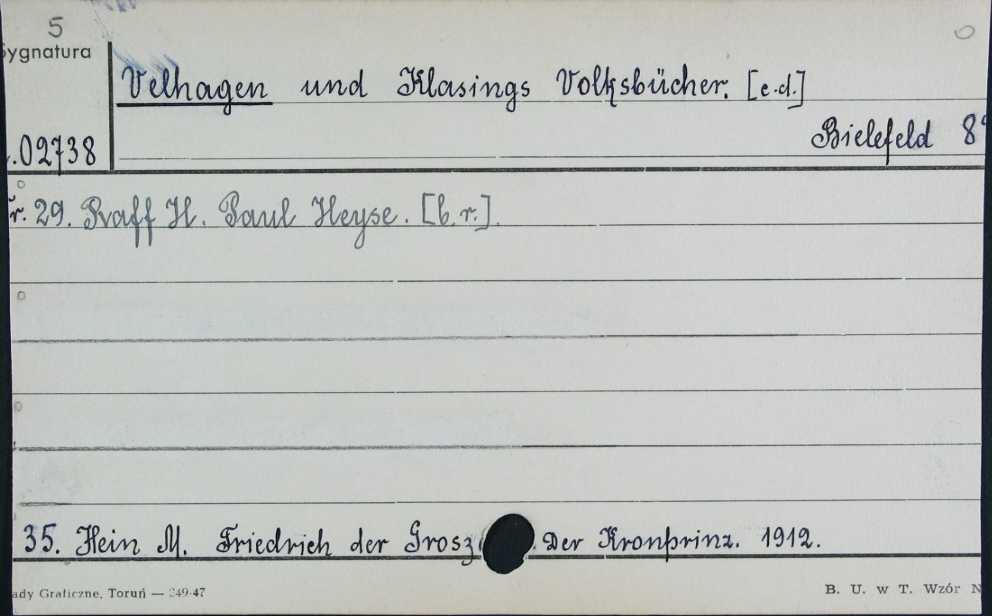 5
Sygnatura
Velhagen und Klasings Volksbücher. [e.d.]
Bielefeld 8°
.02738
r. 29. Raff H. Paul Heyse. [b.r.].
35. Hein M. Friedrich der Grosz . Der Kronprinz. 1912.
ady Graficzne, Toruń — 249-47
B. U. w T. Wzór N